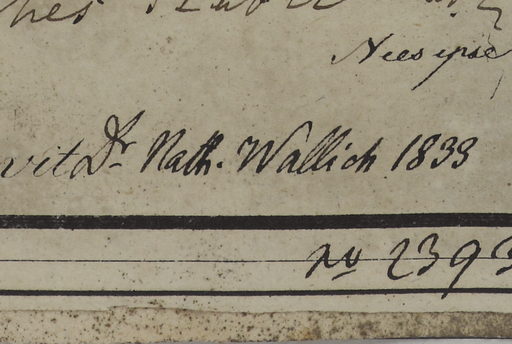 Nees ipse
vit Dr. Nath. Wallich 1833
no 2393